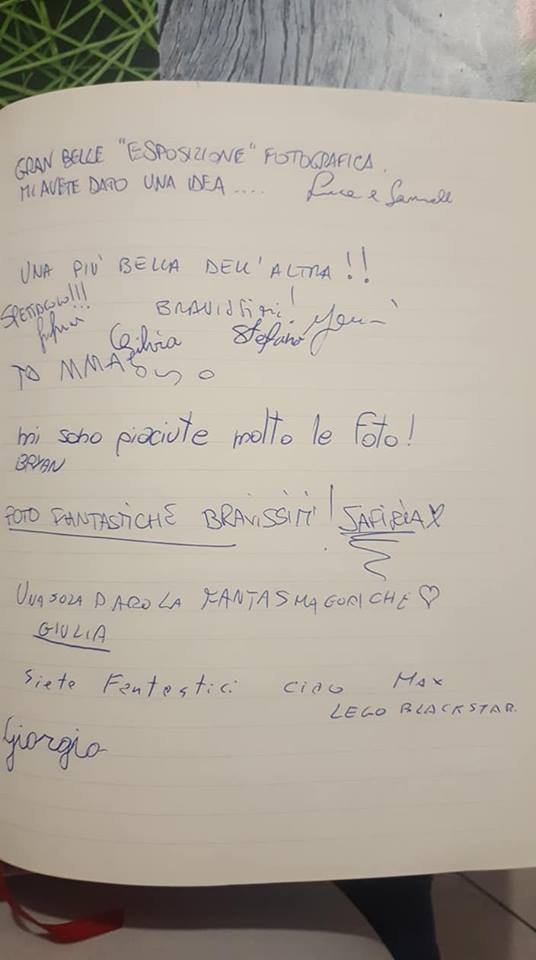 GRAN BELLE "ESPOSIZIONE" FOTOGRAFICA.
MI AVETE DATO UNA IDEA .... Luca e
UNA PIÙ BELLA DELL'ALTRA!!
BRAVISSIMI!
Silvia Stefano
TOMMASO
mi sono piaciute molto le foto!
BRYAN
FOTO FANTASTICHE BRAVISSIMI!
UNA SOLA PAROLA FANTASMAGORICHE ♡
GIULIA
Siete Fantastici CIAO MAX
LEGO BLACKSTAR.
Giorgio